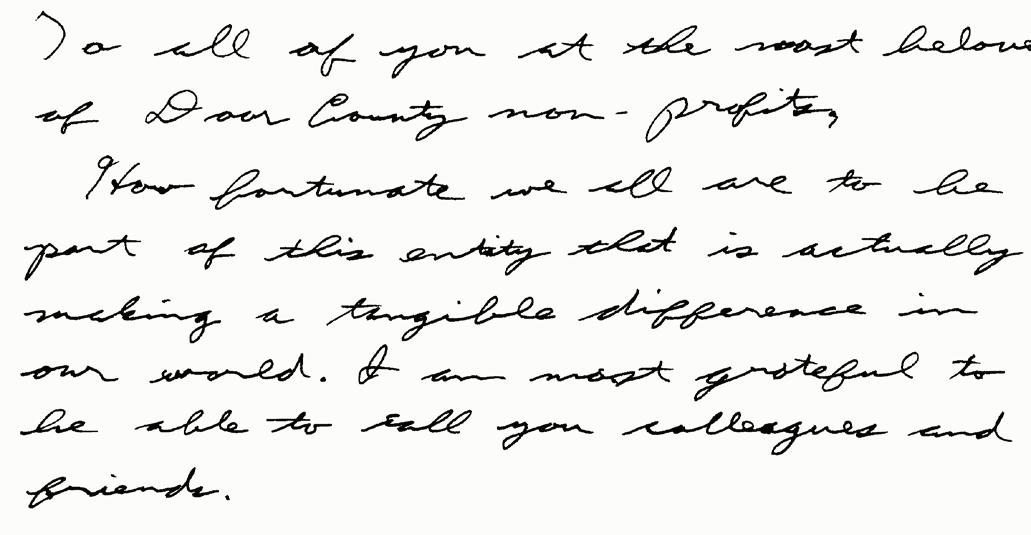 To all of you at the most belove
of Door County non-profits,
How fortunate we all are to be
part of this entity that is actually
making a tangible difference in
our world. I am most grateful to
be able to call you colleagues and
friends.